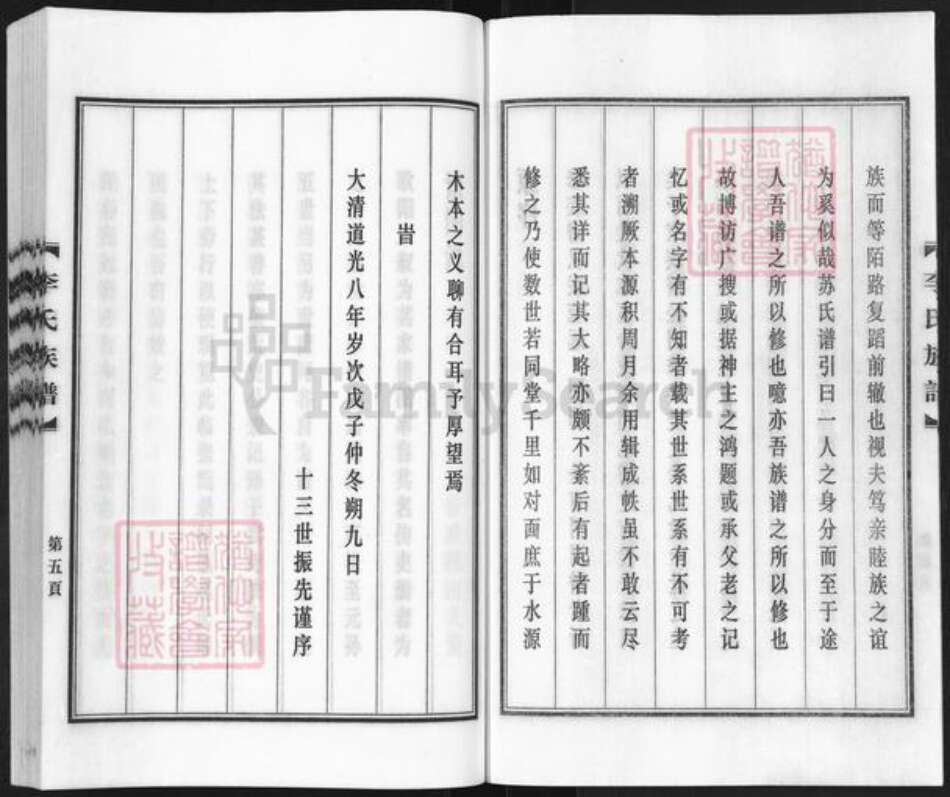 族而等陌路复蹈前辙也视夫笃亲睦族之谊
为奚似哉苏氏谱引曰一人之身分而至于途
人吾谱之所以修也噫亦吾族谱之所以修也
故博访广搜或据神主之鸿题或承父老之记
忆或名字有不知者载其世系世系有不可考
者溯厥本源积周月余用辑成帙虽不敢云尽
悉其详而记其大略亦颇不紊后有起者踵而
修之乃使数世若同堂千里如对面庶于水源
木本之义聊有合耳予厚望焉
旹
大清道光八年岁次戊子仲冬朔九日
十三世振先谨序
李氏族譜
第五頁
李氏族譜
FamilySearch